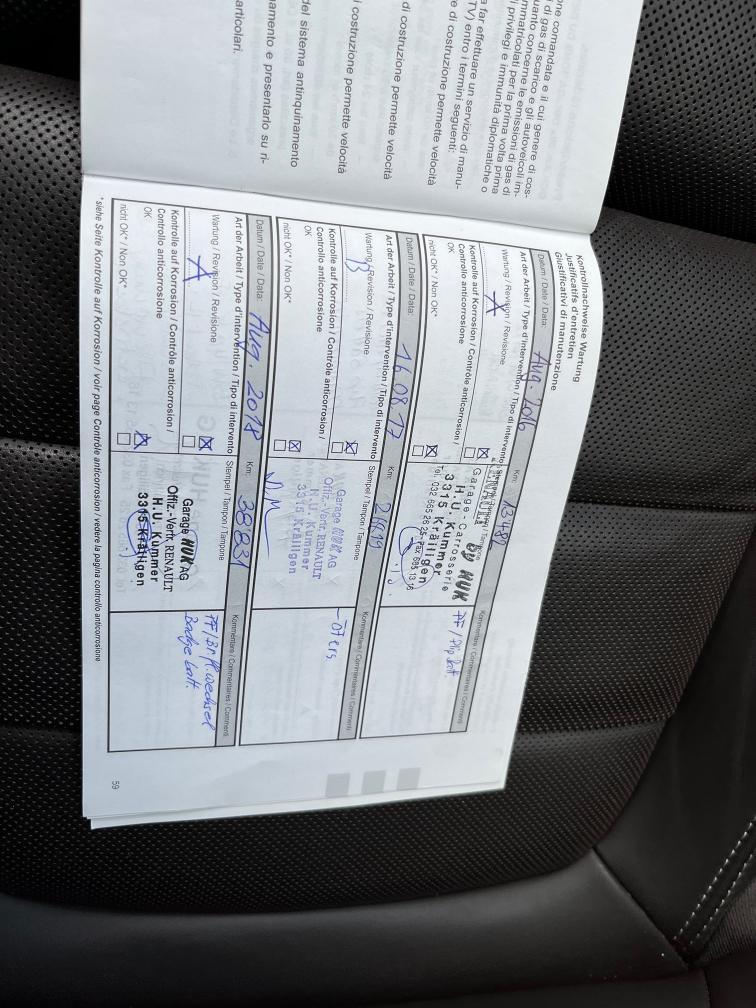 one comandata e il cui genere di cos-
di gas di scarico e gli autoveicoli im-
quanto concerne le emissioni di gas di
mmatricolati per la prima volta prima
i privilegi e immunità diplomatiche o
a far effettuare un servizio di manu-
TV) entro i termini seguenti:
e di costruzione permette velocità
di costruzione permette velocità
i costruzione permette velocità
del sistema antinquinamento
amento e presentarlo su ri-
articolari.
Kontrollnachweise Wartung
Justificatifs d'entretien
Giustificativi di manutenzione
Datum / Date / Data: Aug. 2016 Km:
Art der Arbeit / Type d'intervention / Tipo di intervento
Stempel / Tampon / Tampone
Kommentare / Commentaires / Commenti
A
Wartung / Revision / Revisione
Kontrolle auf Korrosion / Contrôle anticorrosion /
Controllo anticorrosione
OK
nicht OK* / Non OK*
Garage - Carrosserie
H.U. Kummer
3315 Kräiligen
Datum / Date / Data: 16.08.17 Km:
Art der Arbeit / Type d'intervention / Tipo di intervento
Stempel / Tampon / Tampone
Kommentare / Commentaires / Commenti
B
Wartung / Revision / Revisione
Kontrolle auf Korrosion / Contrôle anticorrosion /
Controllo anticorrosione
OK
nicht OK* / Non OK*
Garage HUK AG
Offiz.-Vertr. RENAULT
H.U. Kummer
3315 Kräiligen
Datum / Date / Data: Aug. 2018 Km: 38'831
Art der Arbeit / Type d'intervention / Tipo di intervento
Stempel / Tampon / Tampone
Kommentare / Commentaires / Commenti
A
Wartung / Revision / Revisione
Kontrolle auf Korrosion / Contrôle anticorrosion /
Controllo anticorrosione
OK
nicht OK* / Non OK*
Garage HUK AG
Offiz.-Vertr. RENAULT
H.U. Kummer
3315 Kräiligen
Badge batt.
*siehe Seite Kontrolle auf Korrosion / voir page Contrôle anticorrosion / vedere la pagina controllo anticorrosione
59